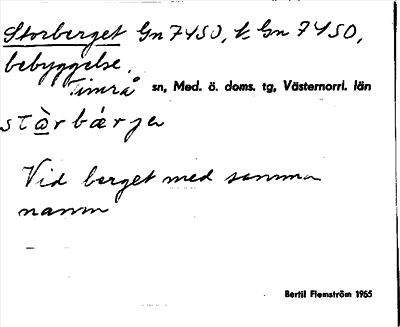 Storberget Gn 7450, k Gn 7450,
bebyggelse.
Timrå sn, Med. ö. doms. tg, Västernorrl. län
stὰrbárje
Vid berget med samma
namn
Bertil Flemström 1965